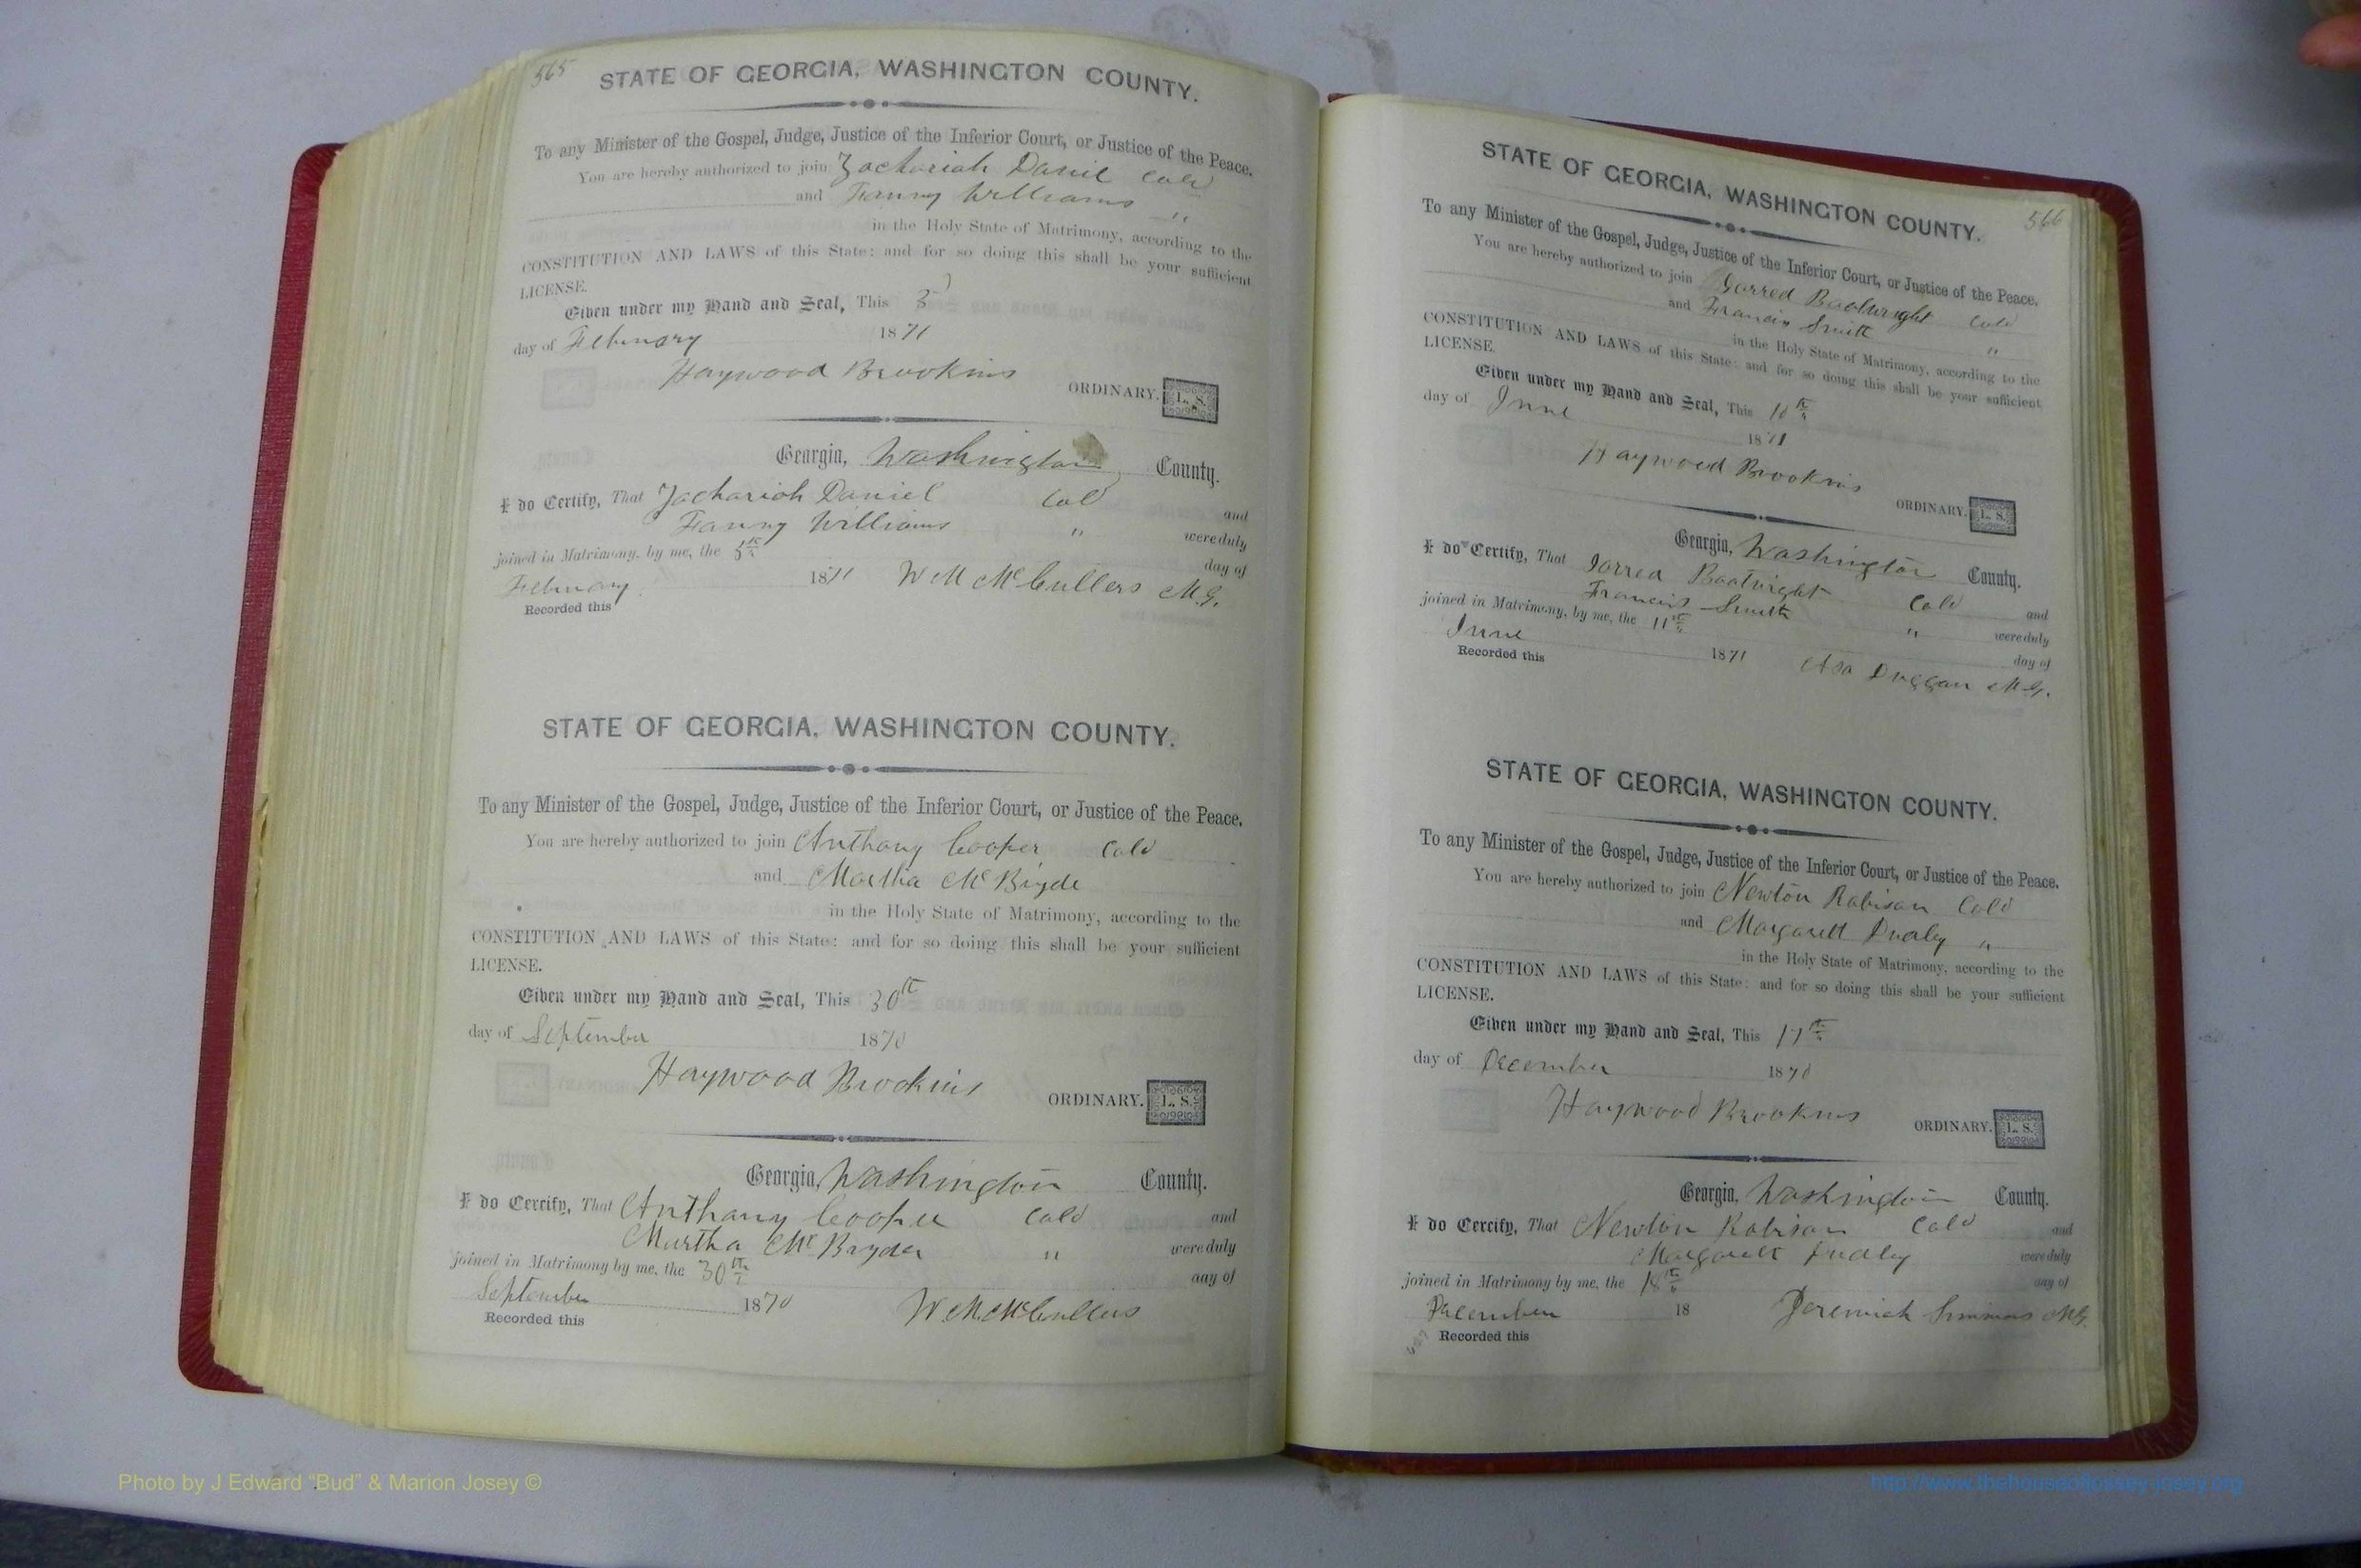 565
STATE OF GEORGIA, WASHINGTON COUNTY.
To any Minister of the Gospel, Judge, Justice of the Inferior Court, or Justice of the Peace.
You are hereby authorized to join Zachariah Daniel Cold
and Fanny Williams "
in the Holy State of Matrimony, according to the
CONSTITUTION AND LAWS of this State: and for so doing this shall be your sufficient
LICENSE.
Given under my Hand and Seal, This
day of February 1871
Haywood Brookins ORDINARY. L. S.
Georgia, Washington County.
I do Certify, That Zachariah Daniel Cold and
Fanny Williams " were duly
joined in Matrimony, by me, the 5th day of
February 1871 W M McCullers M.G.
Recorded this
STATE OF GEORGIA, WASHINGTON COUNTY.
To any Minister of the Gospel, Judge, Justice of the Inferior Court, or Justice of the Peace.
You are hereby authorized to join Anthony Cooper Cold
and Martha McBryde
in the Holy State of Matrimony, according to the
CONSTITUTION AND LAWS of this State: and for so doing this shall be your sufficient
LICENSE.
Given under my Hand and Seal, This 30th
day of September 1870
Haywood Brookins ORDINARY. L. S.
Georgia, Washington County.
I do Cercify, That Anthony Cooper Cold and
Martha McBryde " were duly
joined in Matrimony by me, the 30th day of
September 1870 W. M. McCullers
Recorded this
566
STATE OF GEORGIA, WASHINGTON COUNTY.
To any Minister of the Gospel, Judge, Justice of the Inferior Court, or Justice of the Peace.
You are hereby authorized to join Jarred Boatwright Cold
and Francis Smith "
in the Holy State of Matrimony, according to the
CONSTITUTION AND LAWS of this State: and for so doing this shall be your sufficient
LICENSE.
Given under my Hand and Seal, This 10th
day of June 1871
Haywood Brookins ORDINARY. L. S.
Georgia, Washington County.
I do Certify, That Jarred Boatwright Cold and
Francis Smith " were duly
joined in Matrimony, by me, the 11th day of
June 1871 Asa Duggan M.G.
Recorded this
STATE OF GEORGIA, WASHINGTON COUNTY.
To any Minister of the Gospel, Judge, Justice of the Inferior Court, or Justice of the Peace.
You are hereby authorized to join Newton Robison Cold
and Margarett Dudley "
in the Holy State of Matrimony, according to the
CONSTITUTION AND LAWS of this State: and for so doing this shall be your sufficient
LICENSE.
Given under my Hand and Seal, This 17th
day of December 1870
Haywood Brookins ORDINARY. L. S.
Georgia, Washington County.
I do Cercify, That Newton Robison Cold and
Margarett Dudley were duly
joined in Matrimony by me, the 18th day of
December 18 Jeremiah Simmons M.G.
Recorded this
Photo by J Edward "Bud" & Marion Josey ©
http://www.thehouseofjossey-josey.org